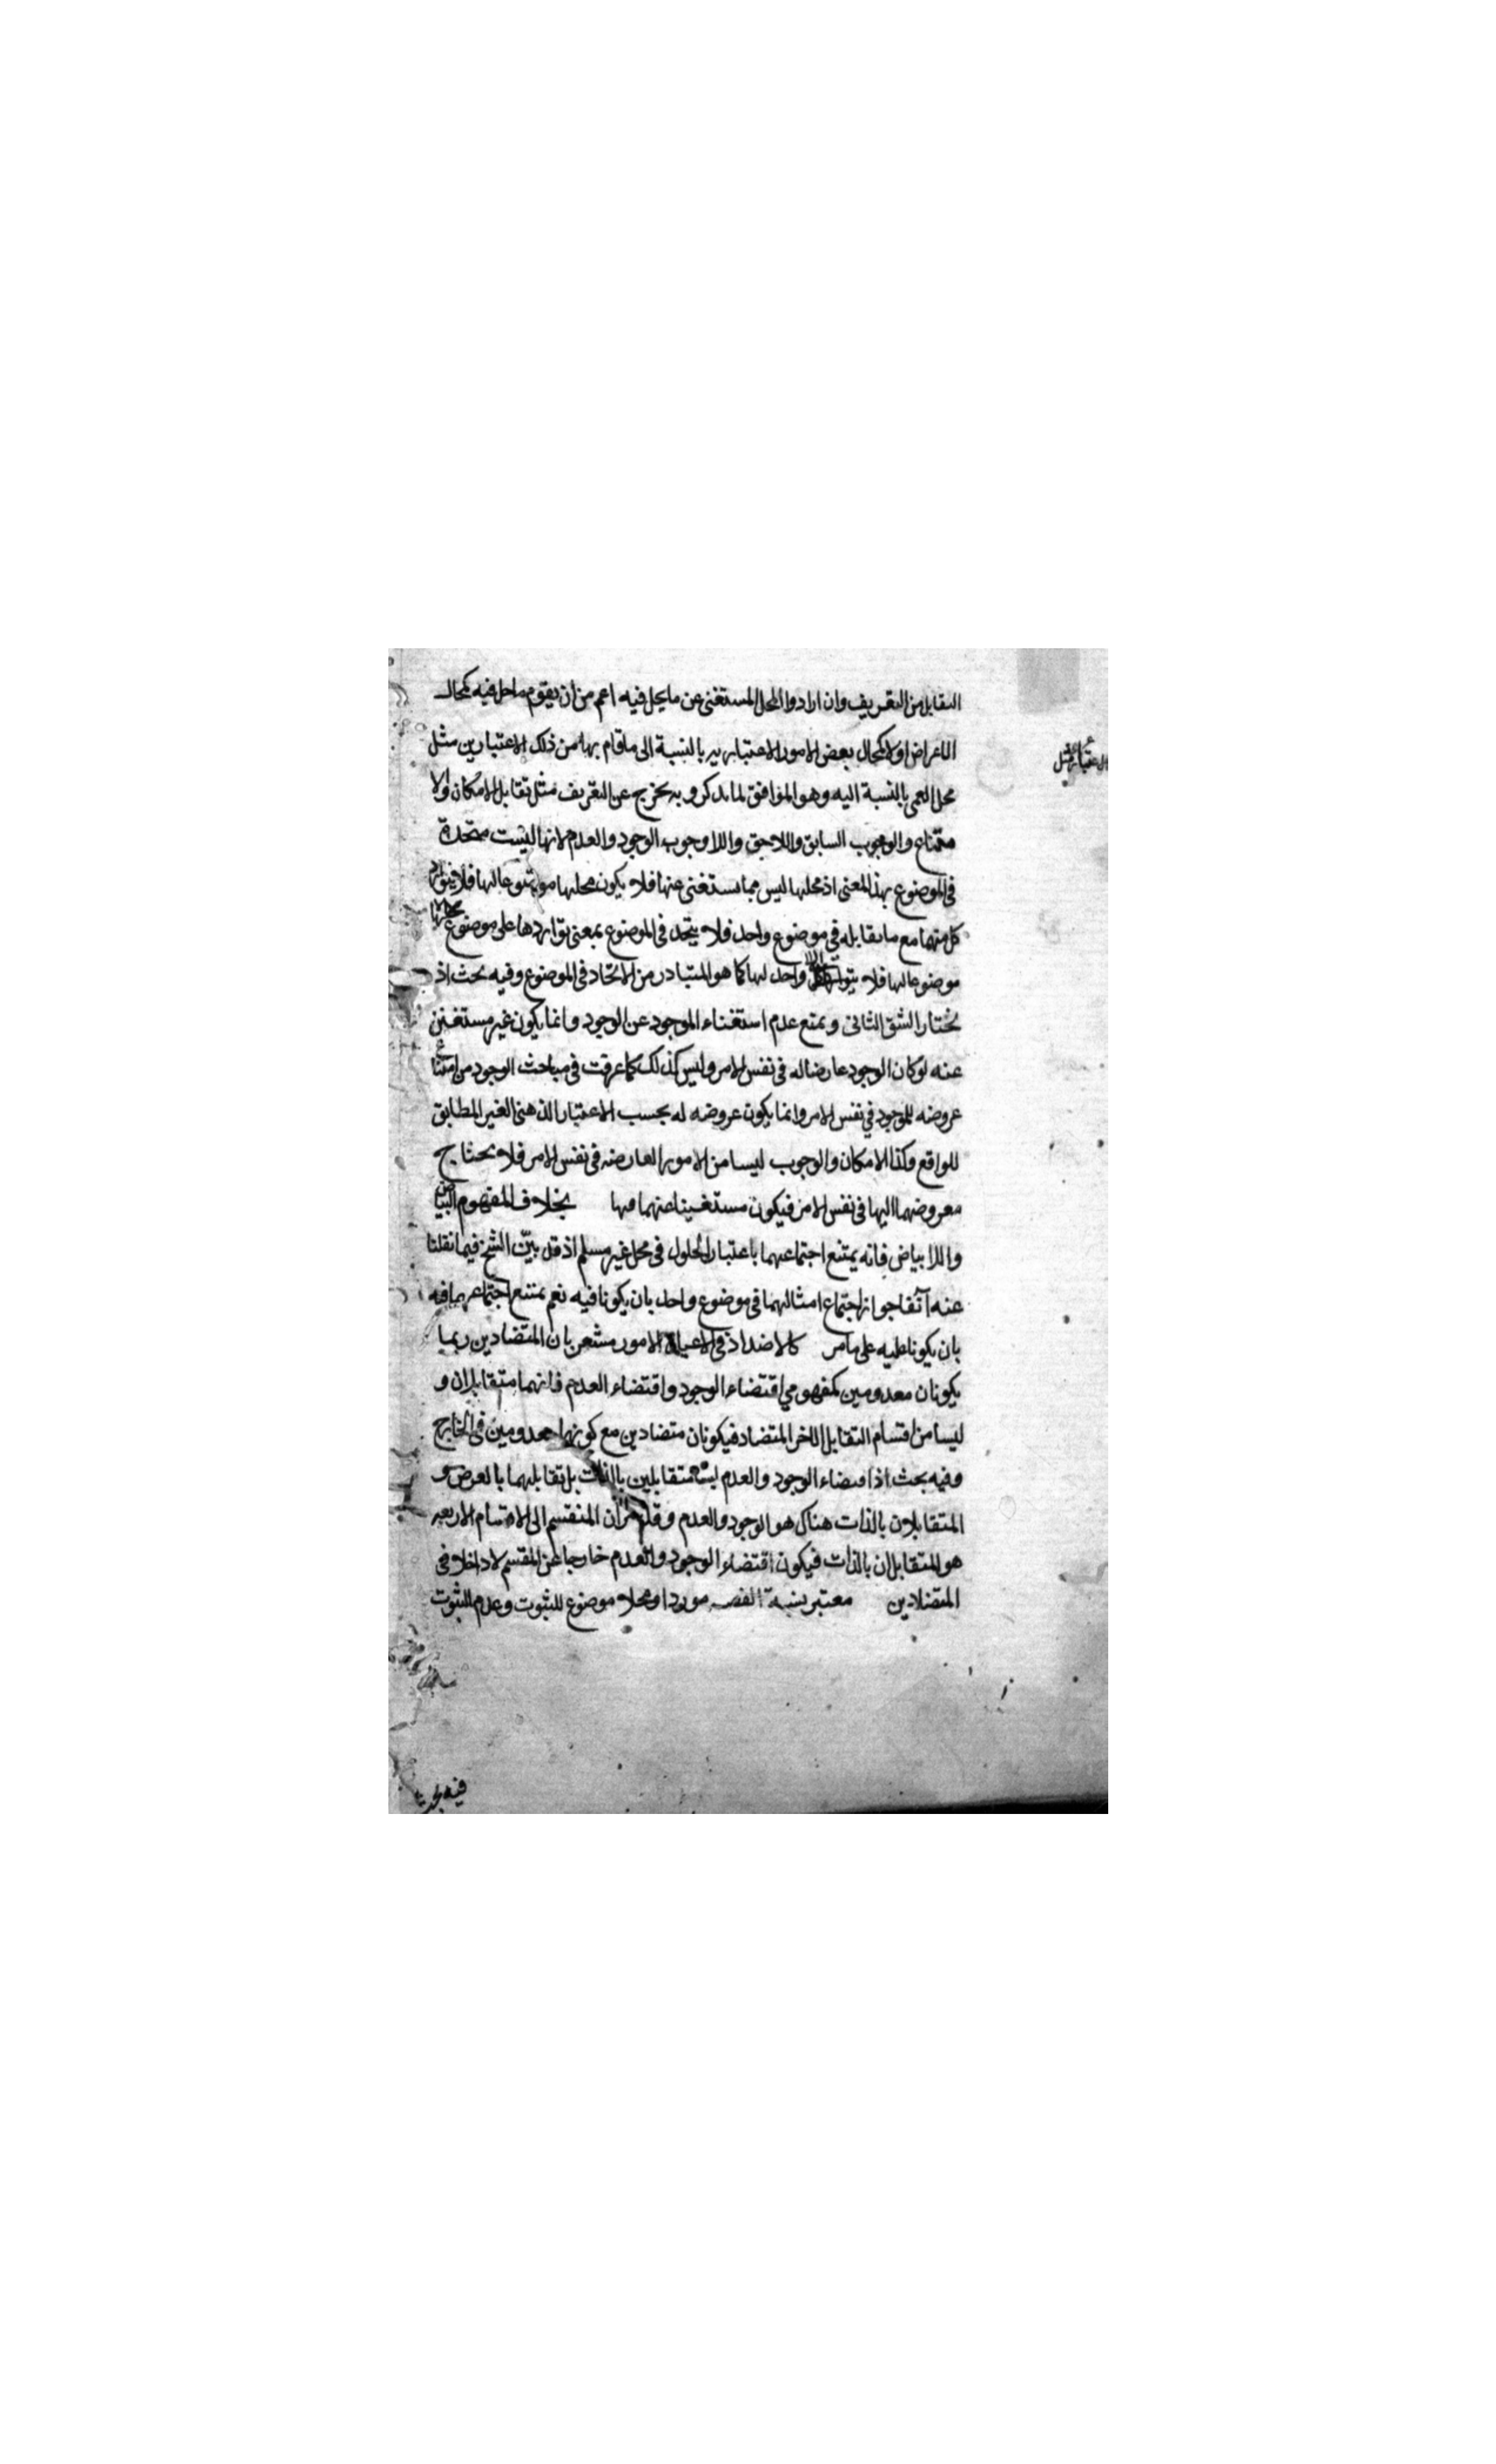 التقابل من التعريف وان ارادوا المحل المستغنى عن ما يحل فيه اعم من ان يقوم ما حل فيه كمحال
الاعراض اولا كمحال بعض الامور الاعتبارية بالنسبة الى ما قام بها من ذلك الاعتبارين مثل
محل العمى بالنسبة اليه وهو الموافق لما يذكر وبه يخرج عن التعريف مثل تقابل الامكان والا
متناع والوجوب السابق واللاحق واللاوجوب الوجود والعدم لانها ليست متحدة
فى الموضوع بهذا المعنى اذ محلها ليس مما يستغنى عنها فلا يكون محلها موضوعا لها فلا يتوارد
كل منها مع ما يقابله فى موضوع واحد فلا يتحد فى الموضوع بمعنى تواردها على موضوع
موضوعا لها فلا واحد لها كما هو المتبادر من الاتحاد فى الموضوع وفيه بحث اذ
نختار الشق الثانى ونمنع عدم استغناء الموجود عن الوجود وانما يكون غير مستغنى
عنه لو كان الوجود عارضا له فى نفس الامر وليس كذلك كما عرفت فى مباحث الوجود من امتناع
عروضه للموجود فى نفس الامر وانما يكون عروضه له بحسب الاعتبار الذهنى الغير المطابق
للواقع وكذا الامكان والوجوب ليسا من الامور العارضه فى نفس الامر فلا يحتاج
معروضهما اليها فى نفس الامر فيكون مستغنيا عنهما فيها بخلاف المفهوم البياض
واللابياض فانه يمتنع اجتماعهما باعتبار الحلول فى محل غير مسلم اذ قد بيّن الشيخ فيما نقلنا
عنه آنفا جواز اجتماع امثالهما فى موضوع واحد بان يكونا فيه نعم يمتنع اجتماعهما فيه
بان يكونا عليه على ما مر كالاضداد فى الاعيان الامور مشعر بان المتضادين ربما
يكونان معدومين كمفهومي اقتضاء الوجود واقتضاء العدم فانهما متقابلان و
ليسا من اقسام التقابل الاخر المتضاد فيكونان متضادين مع كونهما معدومين فى الخارج
وفيه بحث اذ اقتضاء الوجود والعدم ليسا متقابلين بالذات بل تقابلهما بالعرض و
المتقابلان بالذات هناك هو الوجود والعدم وقد مر ان المنقسم الى الاقسام الاربعه
هو المتقابلان بالذات فيكون اقتضاء الوجود والعدم خارجا عن المقسم لا داخلا فى
المتضادين معتبر بنسبة موردا ومحلا موضوع للثبوت وعدم الثبوت
فيه بحث